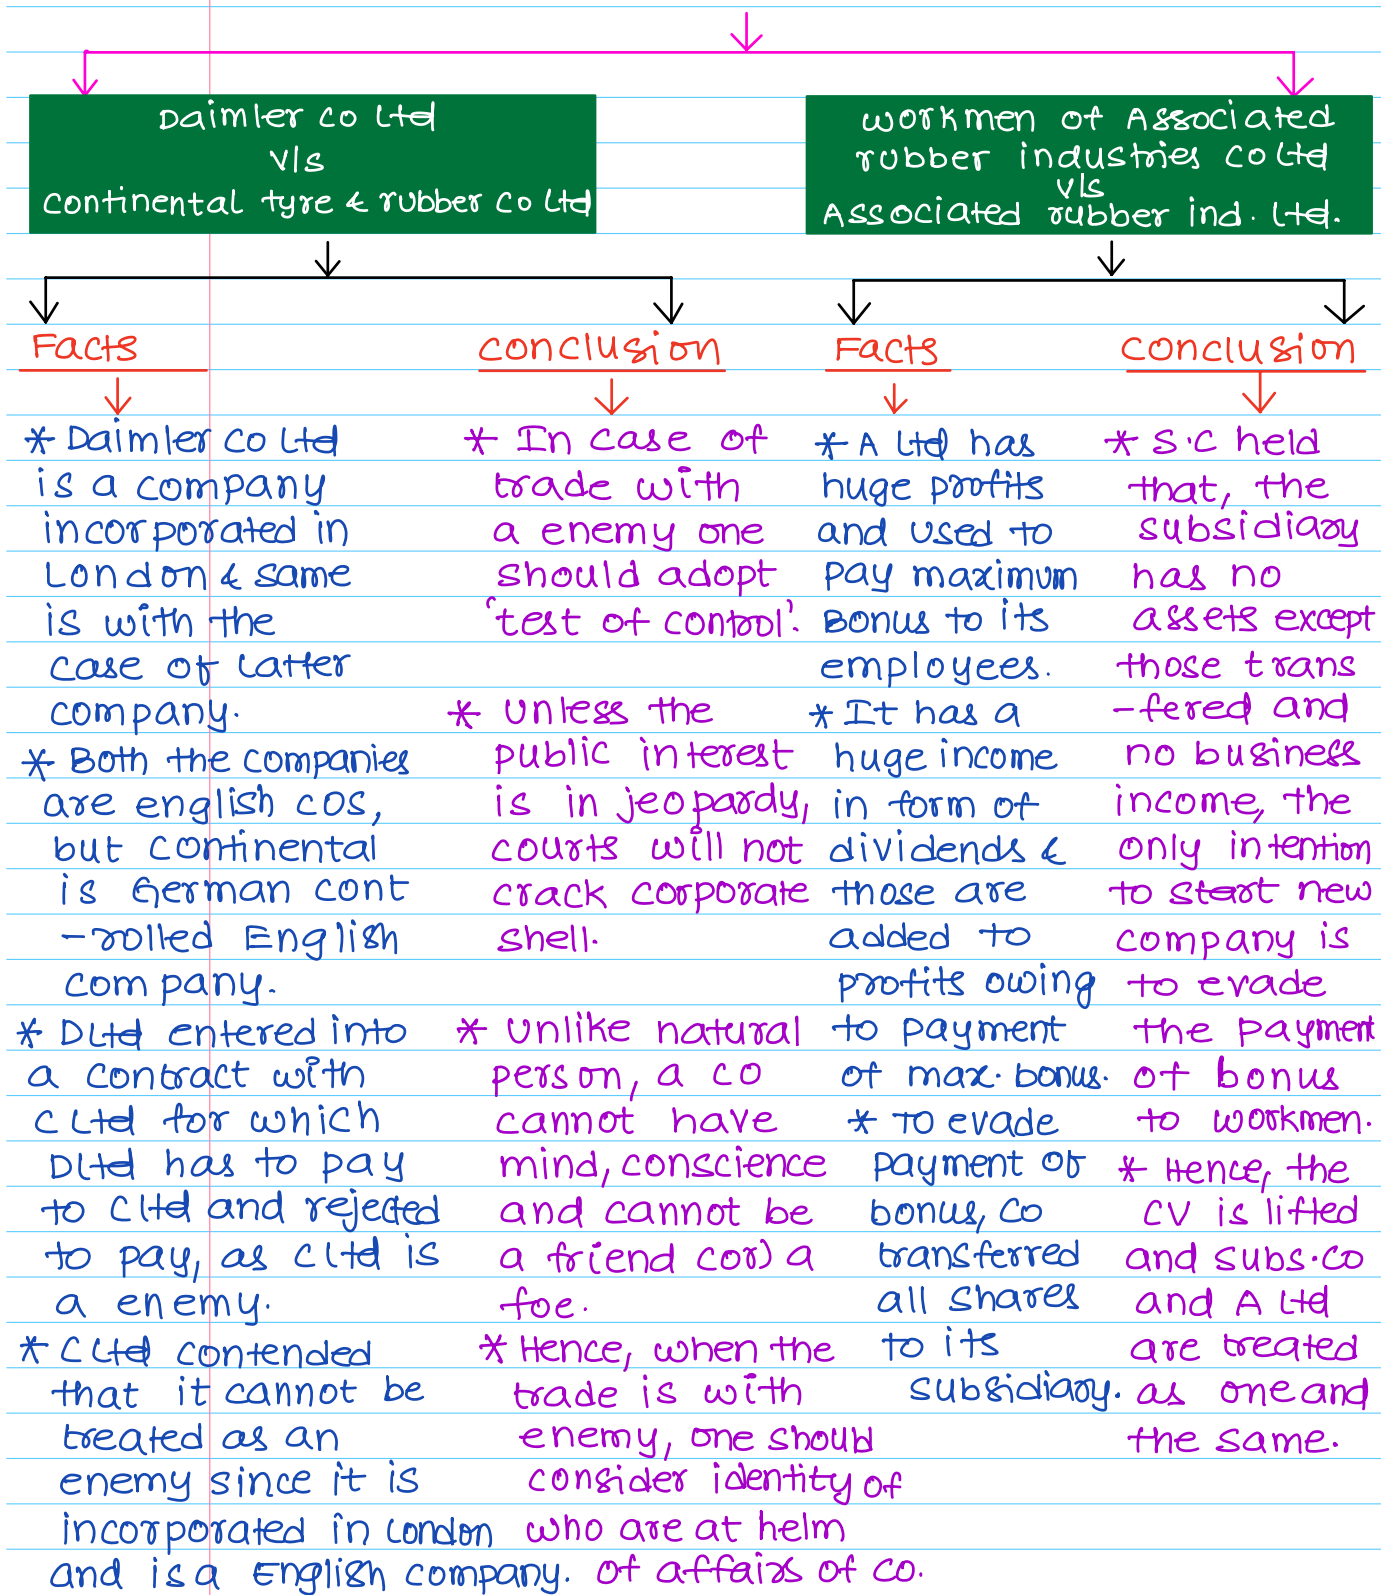 Daimler co Ltd
v/s
continental tyre & rubber co Ltd
workmen of Associated
rubber industries co Ltd
v/s
Associated rubber ind. Ltd.
Facts
* Daimler co Ltd
is a company
incorporated in
London & same
is with the
case of latter
company.
* Both the companies
are english cos,
but continental
is German cont
-rolled English
company.
* DLtd entered into
a contract with
C Ltd for which
DLtd has to pay
to CLtd and rejected
to pay, as CLtd is
a enemy.
* CLtd contended
that it cannot be
treated as an
enemy since it is
incorporated in London
and is a English company.
conclusion
* In case of
trade with
a enemy one
should adopt
'test of control'.
* Unless the
public interest
is in jeopardy,
courts will not
crack corporate
shell.
* Unlike natural
person, a co
cannot have
mind, conscience
and cannot be
a friend cor) a
foe.
* Hence, when the
trade is with
enemy, one should
consider identity of
who are at helm
of affairs of co.
Facts
* A Ltd has
huge profits
and used to
pay maximum
Bonus to its
employees.
* It has a
huge income
in form of
dividends &
those are
added to
profits owing
to payment
of max. bonus.
* To evade
payment of
bonus, co
transferred
all shares
to its
subsidiary.
conclusion
* S.C held
that, the
subsidiary
has no
assets except
those trans
-fered and
no business
income, the
only intention
to start new
company is
to evade
the payment
of bonus
to workmen.
* Hence, the
CV is lifted
and subs.co
and A Ltd
are treated
as one and
the same.